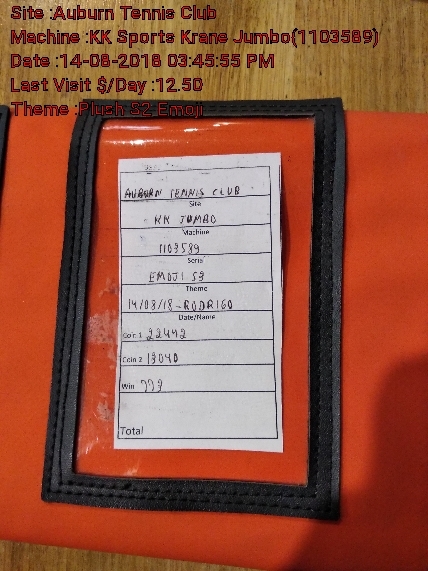 Site :Auburn Tennis Club
Machine :KK Sports Krane Jumbo(1103589)
Date :14-08-2018 03:45:55 PM
Last Visit $/Day :12.50
Theme :Plush S2 Emoji
AUBURN TENNIS CLUB
Site
KK JUMBO
Machine
1103589
Serial
EMOJI S3
Theme
14/08/18-RODRIGO
Date/Name
Coin 1 22442
Coin 2 19040
Win 779
Total